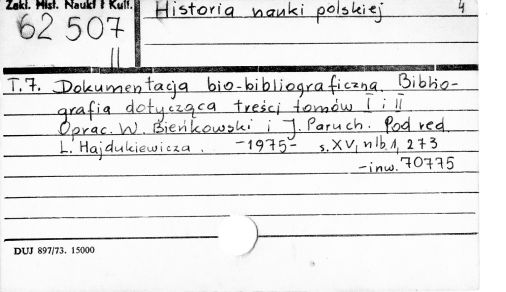 Zakł. Hist. Nauki i Kult.
Historia nauki polskiej 4
62 507
II
T.7. Dokumentacja bio-bibliograficzna. Biblio-
grafia dotycząca treści tomów I i II
Oprac. W. Bieńkowski i J. Paruch. Pod red.
L. Hajdukiewicza. -1975- s. XV, nlb. 1, 273
-inw. 70775
DUJ 897/73. 15000